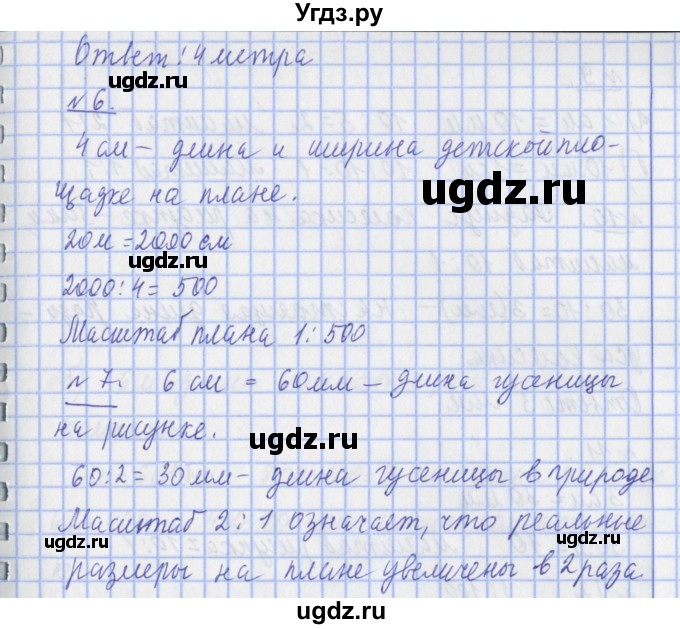 Угдз.ру
Ответ: 4 метра
№ 6.
4 см – длина и ширина детской пло-
щадке на плане.
20м = 2000 см
2000 : 4 = 500
Масштаб плана 1 : 500
№ 7. 6 см = 60 мм – длина гусеницы
на рисунке.
60 : 2 = 30 мм – длина гусеницы в природе
Масштаб 2 : 1 означает, что реальные
размеры на плане увеличены в 2 раза
ugdz.ru
ugdz.ru
ugdz.ru
ugdz.ru
ugdz.ru
ugdz.ru
ugdz.ru
ugdz.ru
ugdz.ru